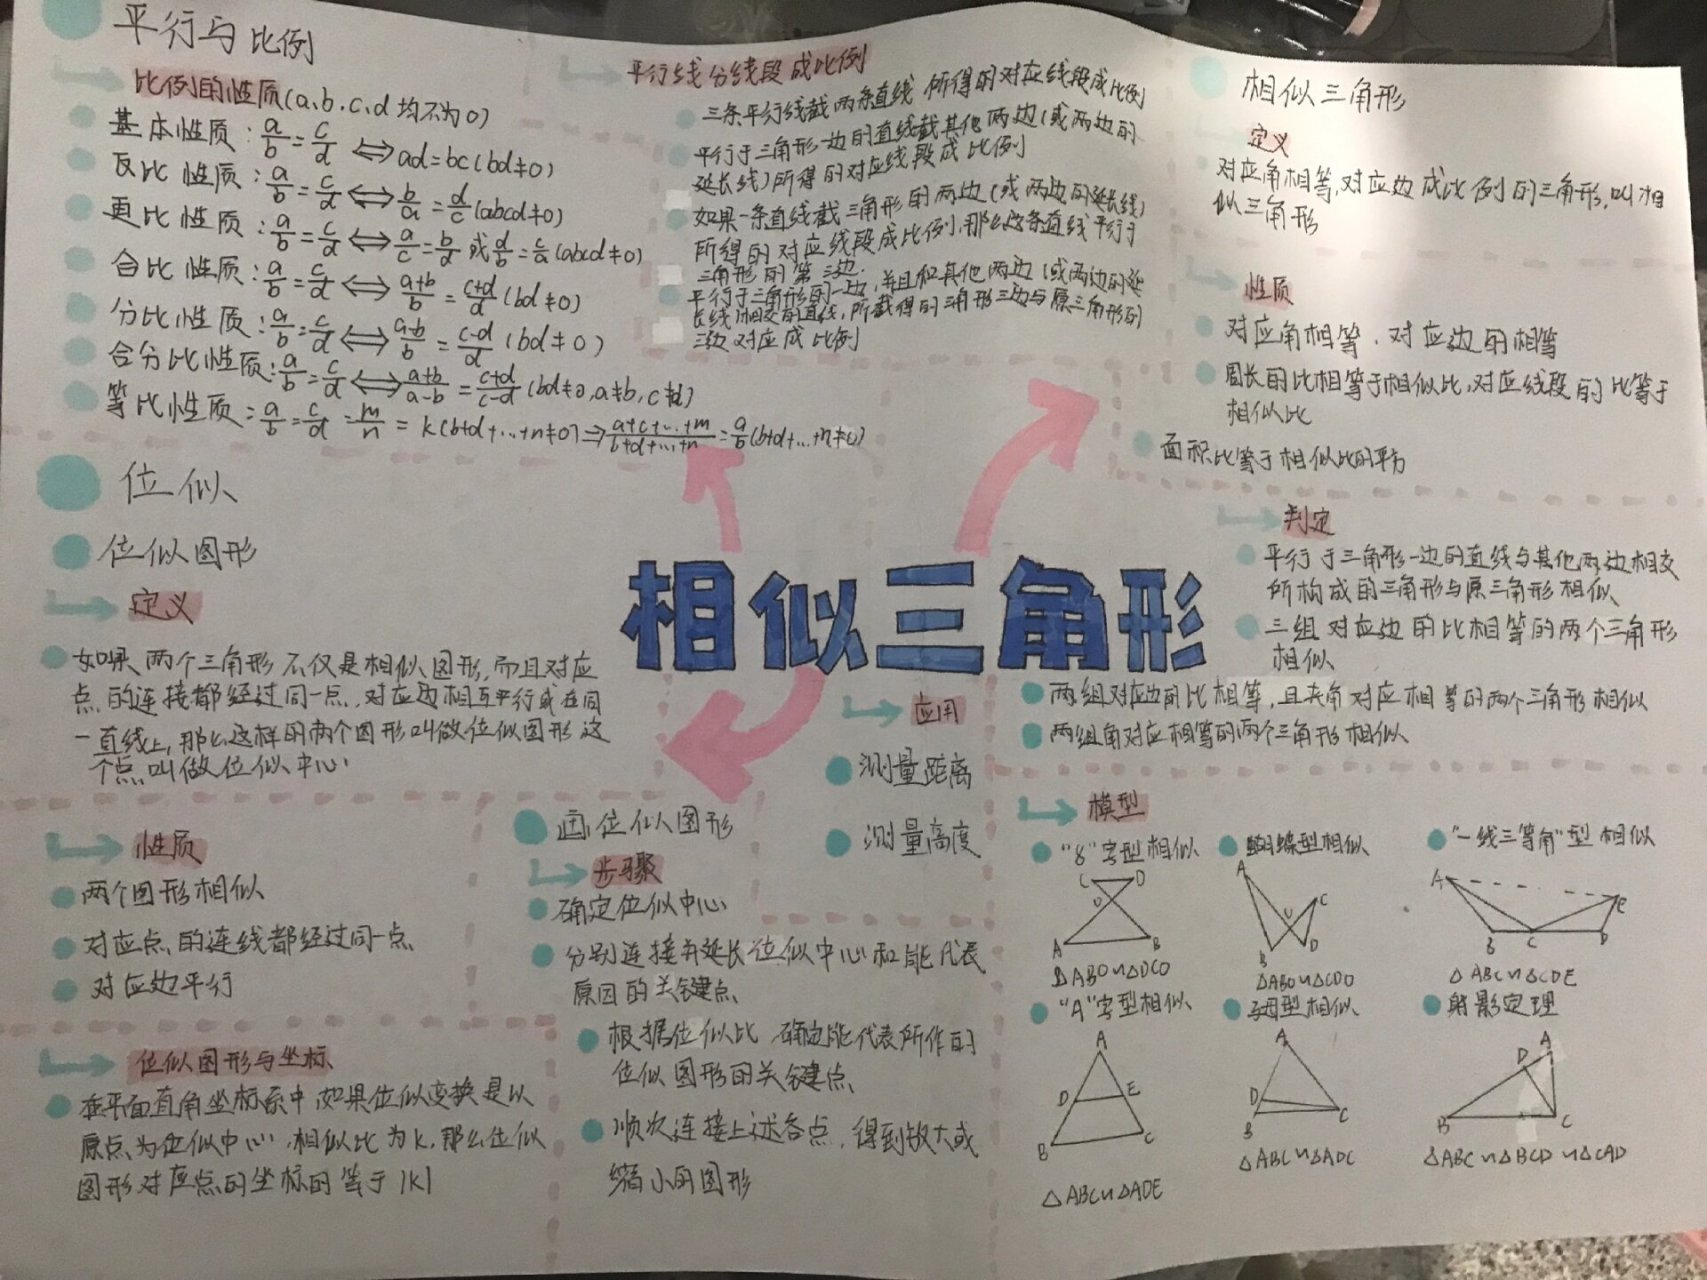 平行与比例
比例的性质(a、b、c、d 均不为0)
基本性质: a/b=c/d ⇔ ad=bc(bd≠0)
反比性质: a/b=c/d ⇔ b/a=d/c(abcd≠0)
更比性质: a/b=c/d ⇔ a/c=b/d 或 d/b=c/a(abcd≠0)
合比性质: a/b=c/d ⇔ (a+b)/b=(c+d)/d(bd≠0)
分比性质: a/b=c/d ⇔ (a-b)/b=(c-d)/d(bd≠0)
合分比性质: a/b=c/d ⇔ (a+b)/(a-b)=(c+d)/(c-d)(bd≠0,a≠b,c≠d)
等比性质: a/b=c/d=m/n=k(b+d+…+n≠0)⇒(a+c+…+m)/(b+d+…+n)=a/b(b+d+…+n≠0)
平行线分线段成比例
三条平行线截两条直线所得的对应线段成比例
平行于三角形一边的直线截其他两边(或两边的
延长线)所得的对应线段成比例
如果一条直线截三角形的两边(或两边的延长线)
所得的对应线段成比例,那么这条直线平行于
三角形的第三边.
平行于三角形的一边,并且和其他两边(或两边的延
长线)相交的直线,所截得的三角形三边与原三角形的
三边对应成比例
相似三角形
定义
对应角相等,对应边成比例的三角形,叫相
似三角形
性质
对应角相等,对应边的相等
周长的比相等于相似比,对应线段的比等于
相似比
面积比等于相似比的平方
判定
平行于三角形一边的直线与其他两边相交
所构成的三角形与原三角形相似
三组对应边的比相等的两个三角形
相似
两组对应边的比相等,且夹角对应相等的两个三角形相似
两组角对应相等的两个三角形相似
相似三角形
位似
位似图形
定义
如果两个三角形不仅是相似图形,而且对应
点的连接都经过同一点,对应边相互平行或在同
一直线上,那么这样的两个图形叫做位似图形这
个点叫做位似中心
性质
两个图形相似
对应点的连线都经过同一点
对应边平行
位似图形与坐标
在平面直角坐标系中,如果位似变换是以
原点为位似中心,相似比为k,那么位似
图形对应点的坐标的等于|k|
画位似图形
步骤
确定位似中心
分别连接并延长位似中心和能代表
原因的关键点
根据位似比,确定能代表所作的
位似图形的关键点
顺次连接上述各点,得到放大或
缩小的图形
应用
测量距离
测量高度
模型
"8"字型相似
C D
O
A B
△ABO∽△DCO
蝴蝶型相似
A
C
O
B D
△ABO∽△CDO
"一线三等角"型相似
A E
B C D
△ABC∽△CDE
"A"字型相似
A
D E
B C
△ABC∽△ADE
母型相似
A
D
B C
△ABC∽△ADC
射影定理
A
D
B C
△ABC∽△BCD∽△CAD